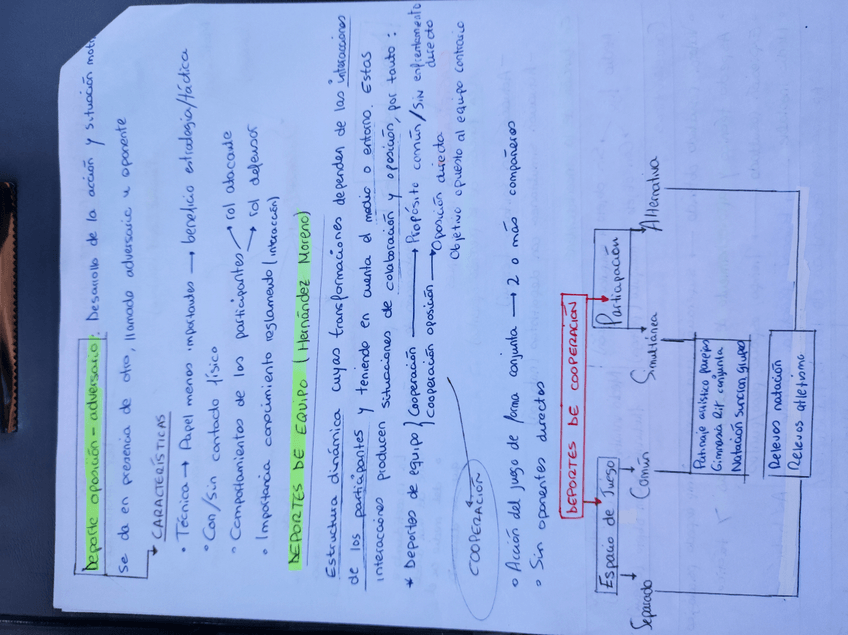 Deporte oposición-adversario: Desarrollo de la acción y situación motriz
se da en presencia de otro, llamado adversario u oponente
CARACTERÍSTICAS
• Técnica → Papel menos importante → beneficio estrategia/táctica
• Con/sin contacto físico
• Comportamientos de los participantes → rol atacante
→ rol defensor
• Importancia conocimiento reglamento (interacción)
DEPORTES DE EQUIPO (Hernández Moreno)
Estructura dinámica cuyas transformaciones dependen de las interacciones
de los participantes y teniendo en cuenta el medio o entorno. Estas
interacciones producen situaciones de colaboración y oposición, por tanto:
* Deportes de equipo { Cooperación → Propósito común/sin enfrentamiento directo
Cooperación oposición → Oposición directa
Objetivo opuesto al equipo contrario
COOPERACIÓN
• Acción del juego de forma conjunta → 2 o más compañeros
• Sin oponentes directos
DEPORTES DE COOPERACIÓN
Espacio de Juego
Participación
Separado
Común
Simultánea
Alternativa
Patinaje artístico parejas
Gimnasia Rit conjunta
Natación sincron grupo
Relevos natación
Relevos atletismo